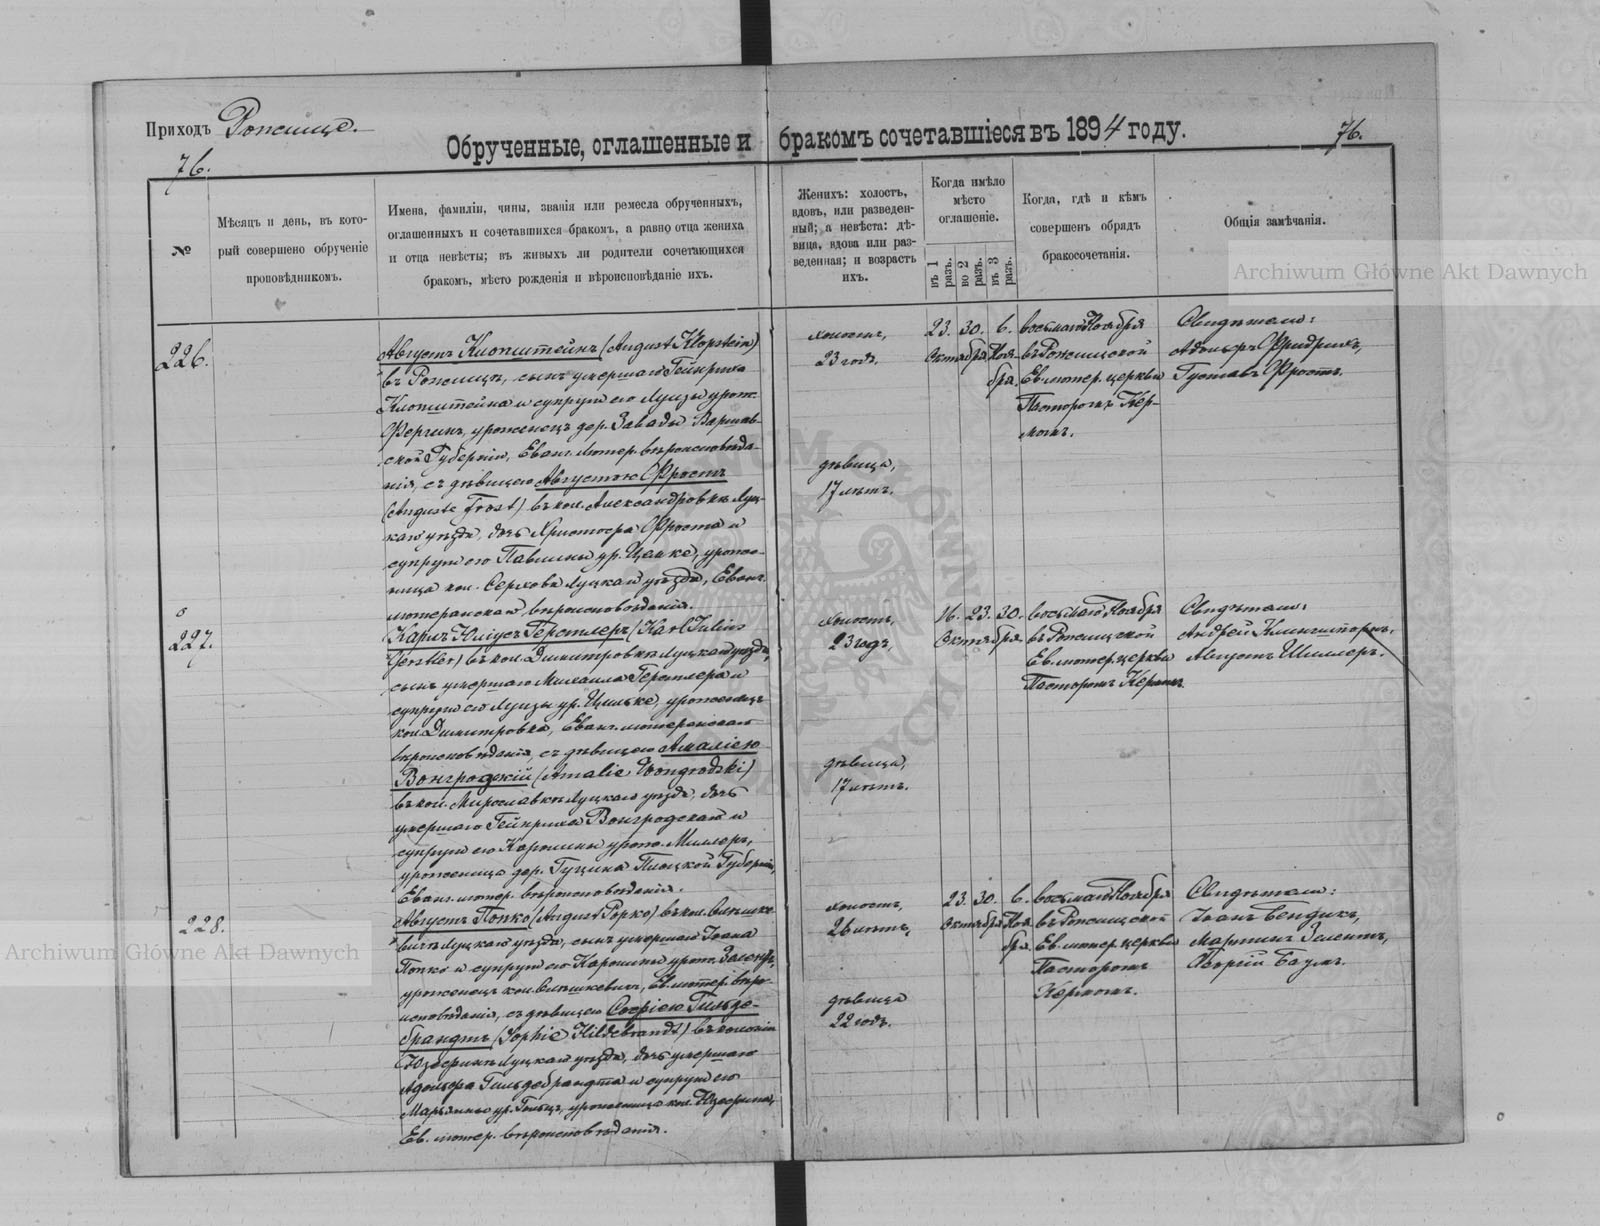 Приходъ Рожище.
Обрученные, оглашенные и бракомъ сочетавшіеся въ 1894 году.
76.
76.
№
Мѣсяцъ и день, въ кото-
рый совершено обрученіе
проповѣдникомъ.
Имена, фамиліи, чины, званія или ремесла обрученныхъ,
оглашенныхъ и сочетавшихся бракомъ, а равно отца жениха
и отца невѣсты; въ живыхъ ли родители сочетающихся
бракомъ, мѣсто рожденія и вѣроисповѣданіе ихъ.
Женихъ: холостъ,
вдовъ, или разведен-
ный; а невѣста: дѣ-
вица, вдова или раз-
веденная; и возрастъ
ихъ.
Когда имѣло
мѣсто
оглашеніе.
въ 1 разъ.
во 2 разъ.
въ 3 разъ.
Когда, гдѣ и кѣмъ
совершенъ обрядъ
бракосочетанія.
Общія замѣчанія.
Archiwum Główne Akt Dawnych
226.
Августъ Клопштейнъ (August Klopstein)
въ Рожищѣ, сынъ умершаго Гейнриха
Клопштейна и супруги его Луизы урож.
уроженецъ дер. Завады Варшав-
ской Губерніи, Еванг. Лютер. вѣроисповѣда-
нія, съ дѣвицею Августою Фростъ
(Auguste Frost) въ кол. Александровкѣ Луц-
каго уѣзда, дочь Христофа Фроста и
супруги его Павлины ур. Цельке, уроже-
ница кол. Серхова Луцкаго уѣзда, Еванг.
лютеранскаго вѣроисповѣданія.
холостъ,
23 годъ.
дѣвица,
17 лѣтъ.
23. 30. 6.
Октября Ноя-
бря.
восьмаго Ноября
въ Рожищской
Ев. лютер. церкви
Пасторомъ Кер-
момъ.
Свидѣтели:
Адольфъ Фридрихъ,
Густавъ Фростъ.
227.
Карлъ Юліусъ Герстлеръ (Karl Julius
Gerstler) въ кол. Димитровкѣ Луцкаго уѣзда,
сынъ умершаго Михаила Герстлера и
супруги его Луизы ур. Цильке, уроженецъ
кол. Димитровка, Еванг. лютеранскаго
вѣроисповѣданія, съ дѣвицею Амаліею
Вонгродскій (Amalie Wongrodski)
въ кол. Мирославкѣ Луцкаго уѣзда, дочь
умершаго Гейнриха Вонгродскаго и
супруги его Каролины урож. Миллеръ,
уроженица дер. Гуцина Плоцкой Губерніи,
Еванг. лютер. вѣроисповѣданія.
холостъ,
23 годъ,
дѣвица,
17 лѣтъ.
16. 23. 30.
Октября.
восьмаго Ноября
въ Рожищской
Ев. лютер. церкви
Пасторомъ Кермомъ
Свидѣтели:
Андрей
Августъ Шиллеръ.
228.
Августъ Попко (August Popko) въ кол.
Луцкаго уѣзда, сынъ умершаго Іоана
Попко и супруги его Каролины урож.
уроженецъ кол. Ев. лютер. вѣро-
исповѣданія, съ дѣвицею Софіею Гильде-
брандтъ (Sophie Hildebrandt) въ колоніи
Юзефинъ Луцкаго уѣзда, дочь умершаго
Адольфа Гильдебрандта и супруги его
Марьянны ур. Гольцъ, уроженица кол. Юзефина,
Ев. лютер. вѣроисповѣданія.
холостъ,
26 лѣтъ,
дѣвица
22 годъ.
23. 30. 6.
Октября Ноя-
бря.
восьмаго Ноября
въ Рожищской
Ев. лютер. церкви
Пасторомъ
Кермомъ.
Свидѣтели:
Іоанъ Бендикъ,
Мартинъ
Георгій Баумъ.
Archiwum Główne Akt Dawnych